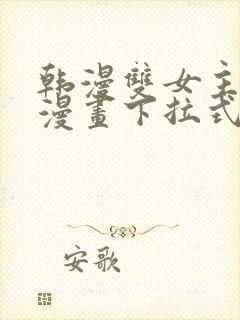 韩漫雙女主
漫畫下拉式
安歌